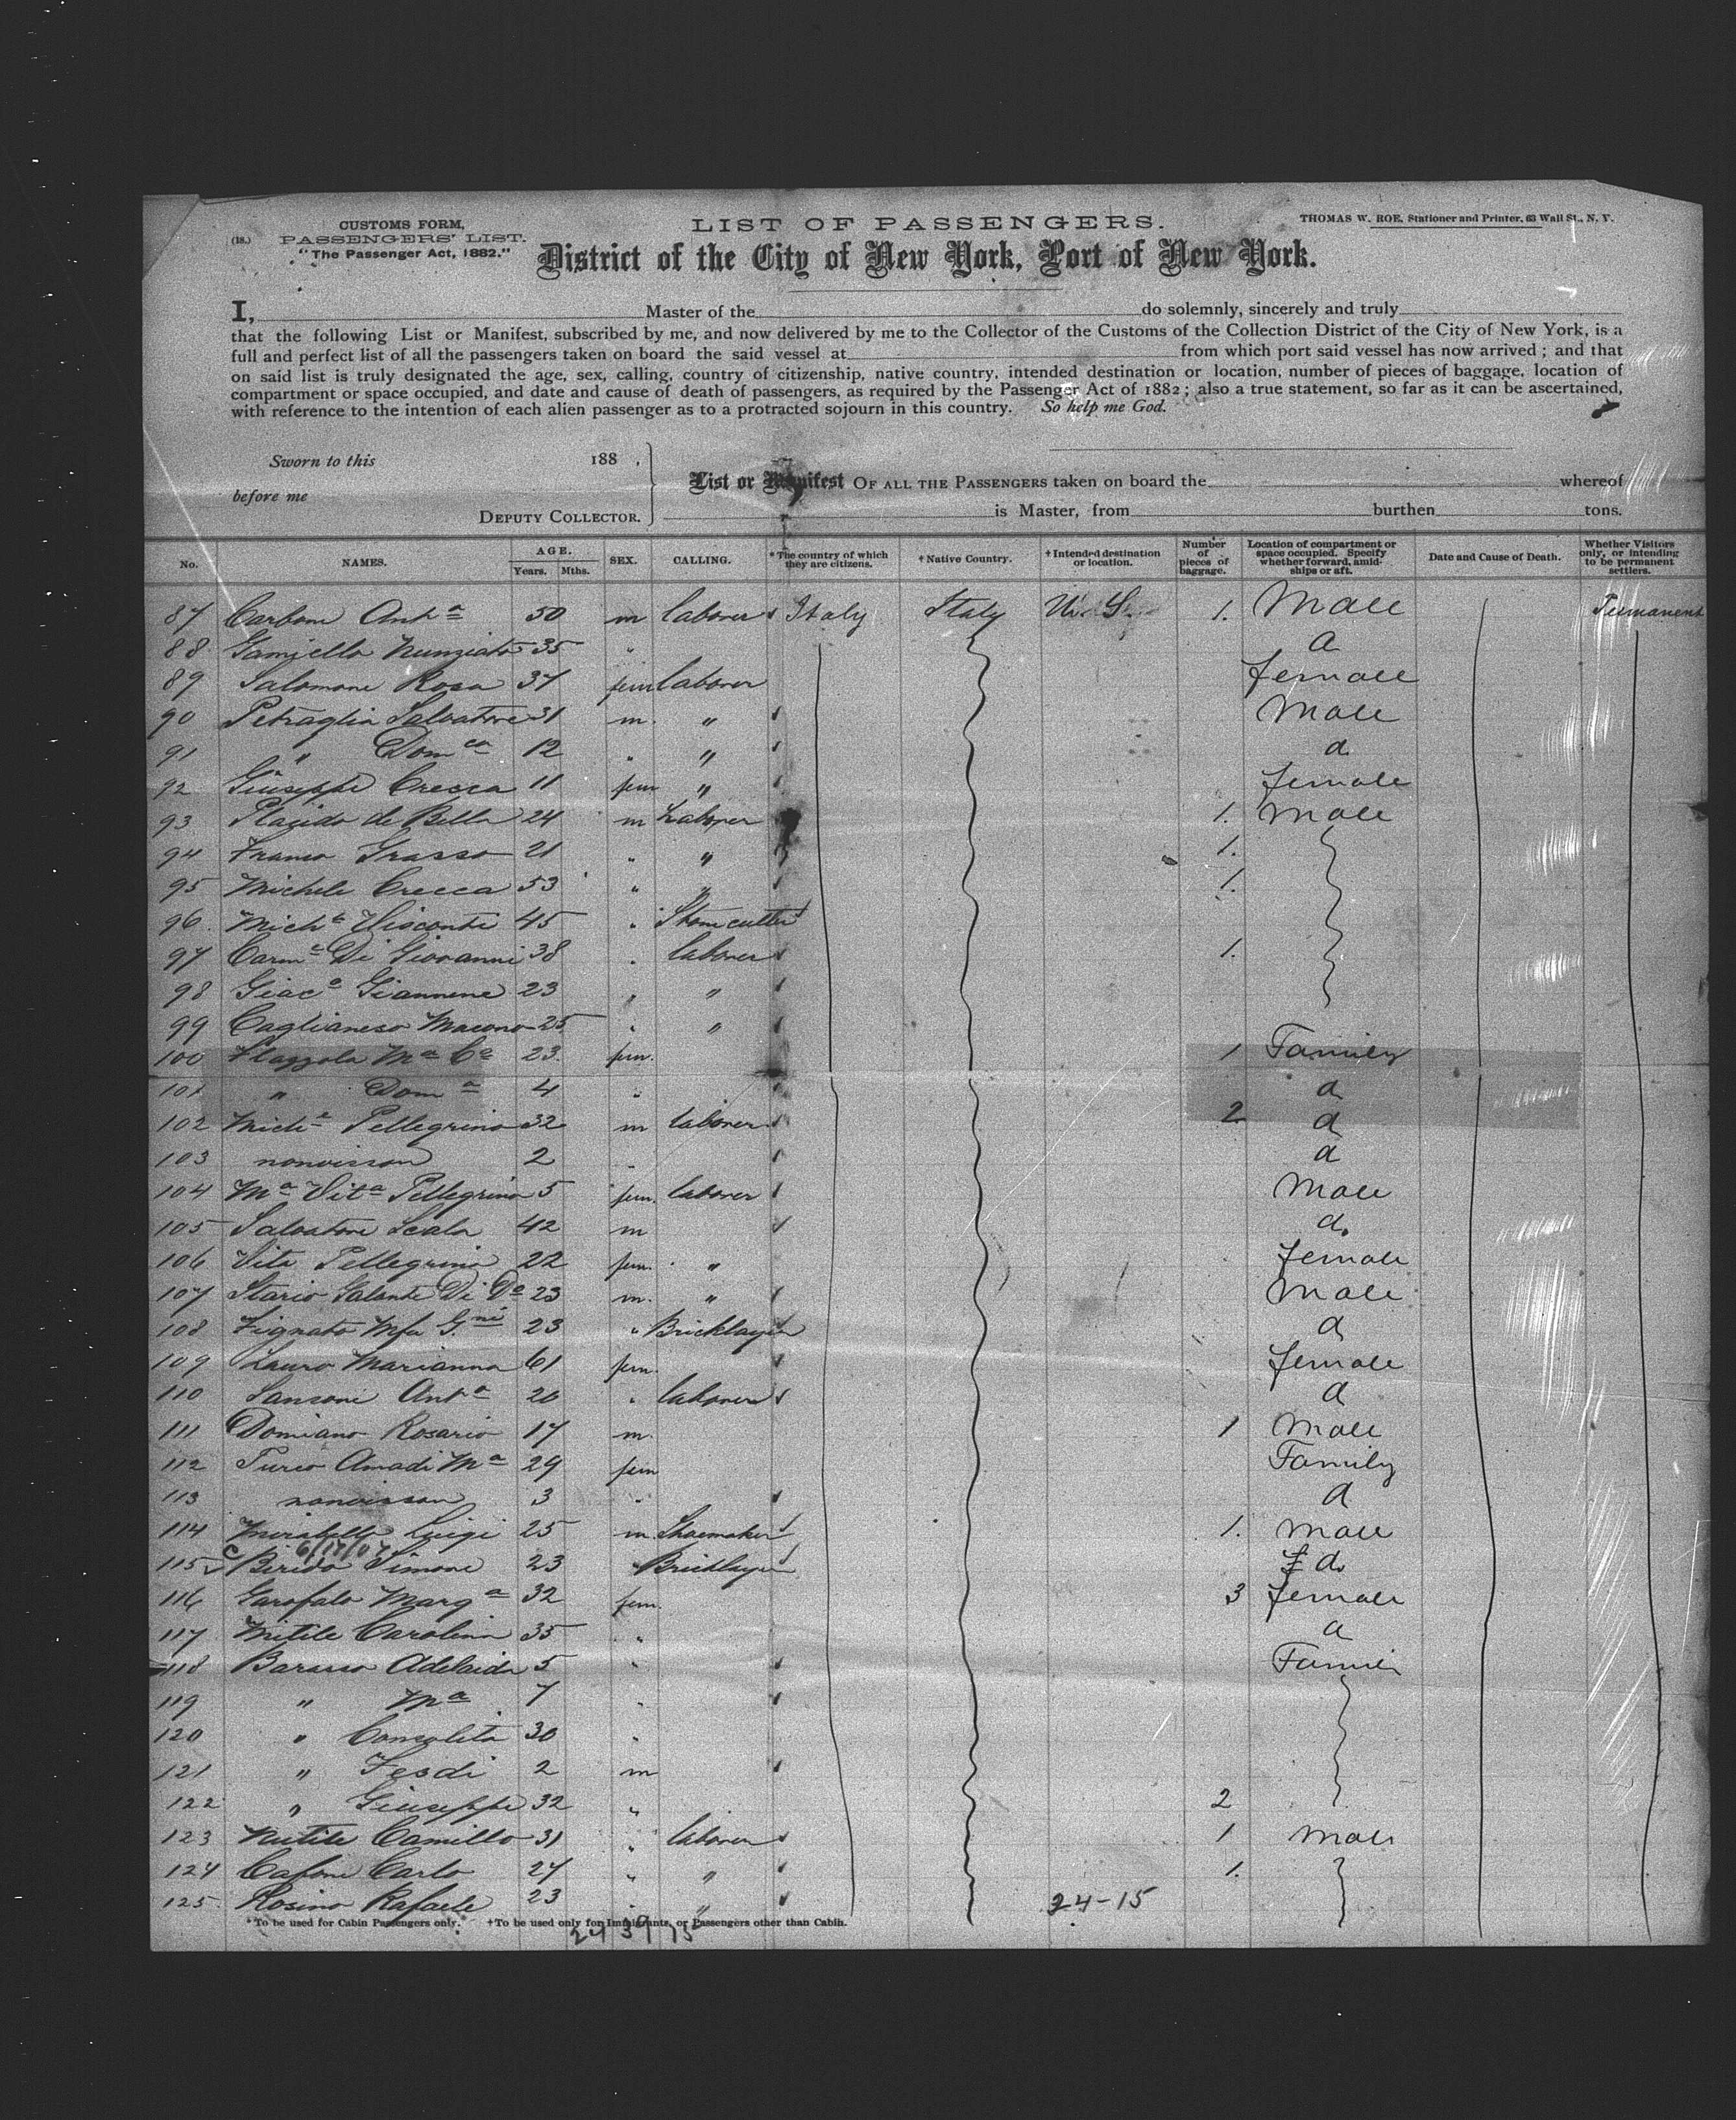 (18.)
CUSTOMS FORM,
PASSENGERS' LIST.
"The Passenger Act, 1882."
LIST OF PASSENGERS.
THOMAS W. ROE, Stationer and Printer, 63 Wall St., N. Y.
District of the City of New York, Port of New York.
I, Master of the do solemnly, sincerely and truly
that the following List or Manifest, subscribed by me, and now delivered by me to the Collector of the Customs of the Collection District of the City of New York, is a
full and perfect list of all the passengers taken on board the said vessel at from which port said vessel has now arrived; and that
on said list is truly designated the age, sex, calling, country of citizenship, native country, intended destination or location, number of pieces of baggage, location of
compartment or space occupied, and date and cause of death of passengers, as required by the Passenger Act of 1882; also a true statement, so far as it can be ascertained,
with reference to the intention of each alien passenger as to a protracted sojourn in this country. So help me God.
Sworn to this 188 .
before me
DEPUTY COLLECTOR.
List or Manifest OF ALL THE PASSENGERS taken on board the whereof
is Master, from burthen tons.
No. NAMES. AGE. Years. Mths. SEX. CALLING. *The country of which they are citizens. †Native Country. †Intended destination or location. Number of pieces of baggage. Location of compartment or space occupied. Specify whether forward, amidships or aft. Date and Cause of Death. Whether Visitors only, or intending to be permanent settlers.
87 Carbone Anta 50 m laborer Italy Italy U. S. 1. Male Permanent
88 Nunziato 35 " d
89 Salomone Rosa 37 fem laborer female
90 Petraglia Salvatore 31 m. " Male
91 " Domca 12 " " d
92 Giuseppe Cresca 11 fem " female
93 Placido de Bella 24 m Laborer 1. Male
94 Franco Grasso 21 " " 1.
95 Michele Crecca 53 " " 1.
96 Miche Visconti 45 " Stonecutter
97 Carme Di Giovanni 38 " laborer 1.
98 Giaco Giannone 23 " "
99 25 " "
100 Ma Ca 23. fem. 1 Family
101 " Doma 4 " d
102 Miche Pellegrino 32 m laborer 2 d
103 2 " d
104 Ma Vita Pellegrino 5 fem. laborer Male
105 Salvatore Scala 42 m d.
106 Vita Pellegrino 22 fem. " female
107 Galante Di 23 m. " Male
108 23 " Bricklayer d
109 Lauro Marianna 61 fem. female
110 Sansone Anta 20 " laborer d
111 Domiano Rosario 17 m. 1 Male
112 Turco Amadi Ma 29 fem Family
113 3 " d
114 Mirabella Luigi 25 m Shoemaker 1. Male
115 Simone 23 " Bricklayer d.
116 Garofalo Marga 32 fem. 3 female
117 Carolina 35 " d
118 Adelaide 5 " Family
119 " Ma 7 "
120 " 30 "
121 " 2 m
122 " Giuseppe 32 " 2
123 Camillo 31 " laborer 1 Male
124 Carlo 27 " " 1.
125. Rosino Rafaele 23 " 24-15
*To be used for Cabin Passengers only. †To be used only for Immigrants, or Passengers other than Cabin.
24 39 15